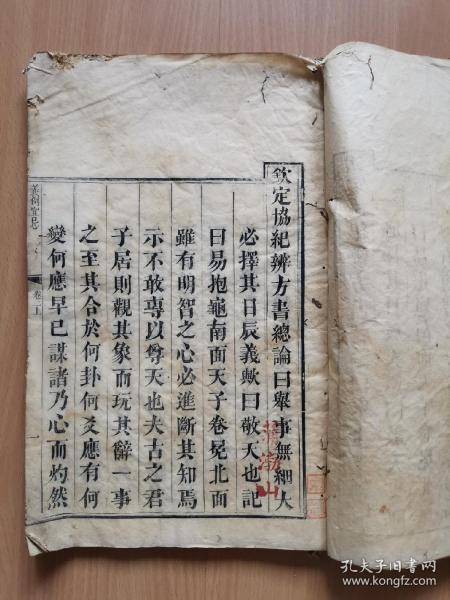 欽定協紀辨方書總論曰舉事無細大
必擇其日辰義歟曰敬天也記
曰易抱龜南面天子卷冕北面
雖有明智之心必進斷其知焉
示不敢專以尊天也夫古之君
子居則觀其象而玩其辭一事
之至其合於何卦何爻應有何
變何應早已謀諸乃心而灼然
義例宜忌
卷二五
一
孔夫子旧书网
www.kongfz.com